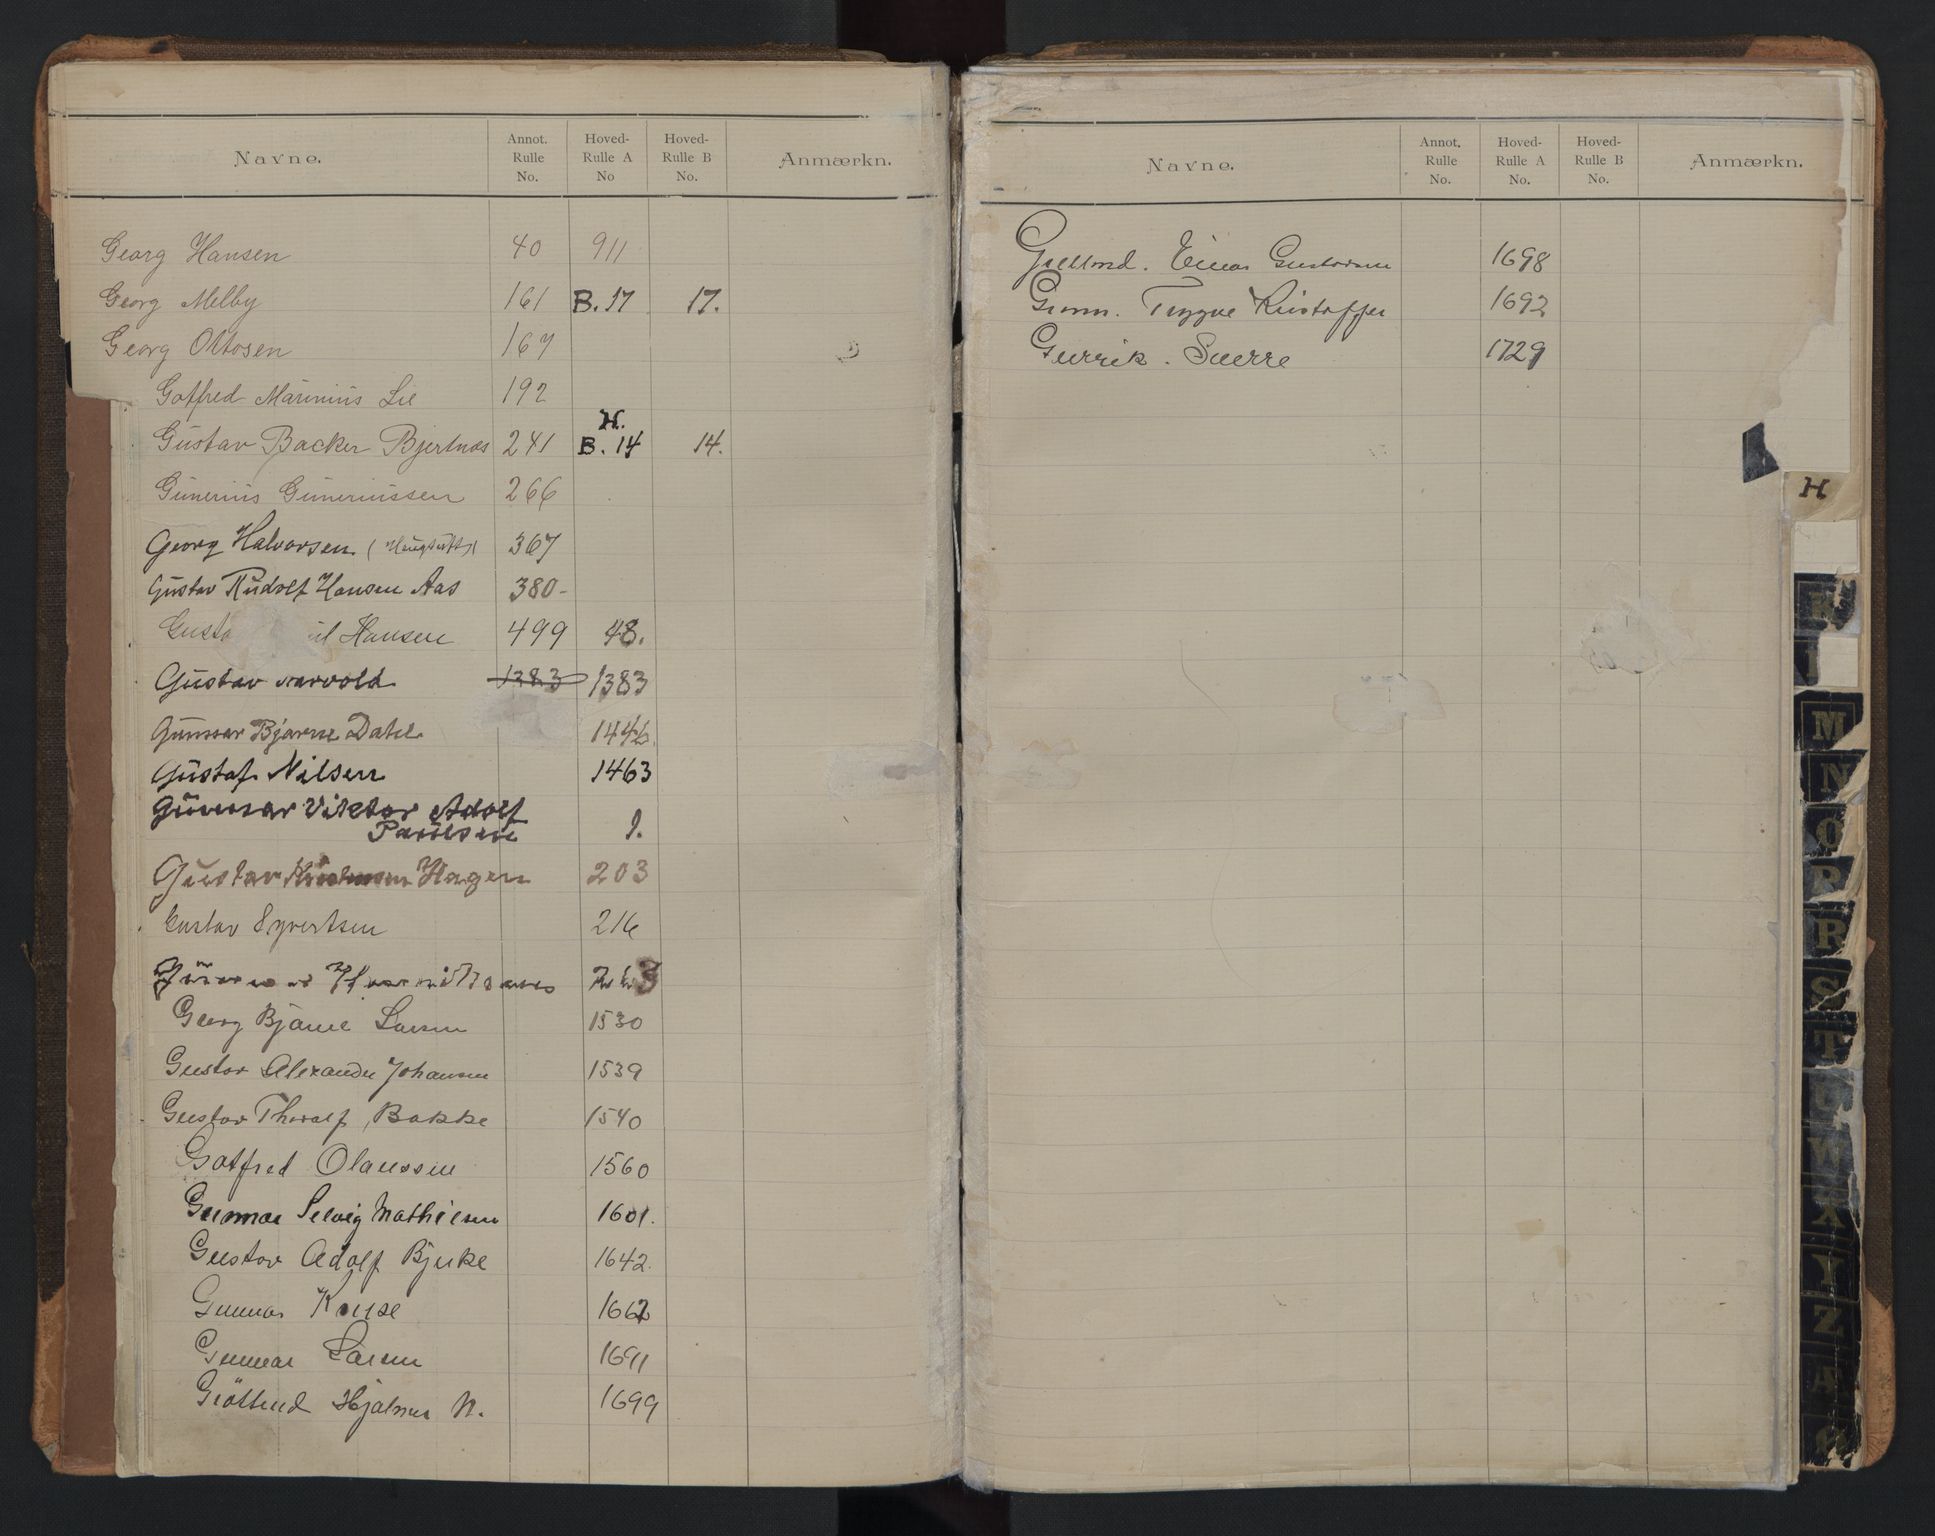 Navne. Annot. Rulle No. Hoved-Rulle A No Hoved-Rulle B No. Anmærkn.
Georg Hansen 40 911
Georg Melby 161 B. 17 17.
Georg Ottosen 167
Gotfred Marinius Lie 192
H.
Gustav Backer Bjertnæs 241 B. 14 14.
Gunerius Guneriussen 266
Georg Halvorsen 367
Gustav Rudolf Hansen Aas 380-
Hansen 499 48.
Gustav 1383 1383
Gunnar Bjarne Dahl 1446.
Gustaf Nilsen 1463
Gunnar Viktor Adolf
Paulsen 1.
Gustav Hagen 203
Gustav Syvertsen 216
Gunnar
Georg Bjarne Larsen 1530
Gustav Alexander Johansen 1539
Gustav Thoralf Bakke 1540
Gotfred Olaussen 1560
Gunnar Selvig Mathiesen 1601.
Gustav Adolf Bjerke 1642.
Gunnar Kruse 1662
Gunnar Larsen 1691
Gröttend Hjalmar N. 1699
Navne. Annot. Rulle No. Hoved-Rulle A No. Hoved-Rulle B No. Anmærkn.
Einar Gustavsen 1698
Trygve Kristoffer 1692
Sverre 1729
H
K
M
N
O
P
R
S
T
U
W
X
Y
Z